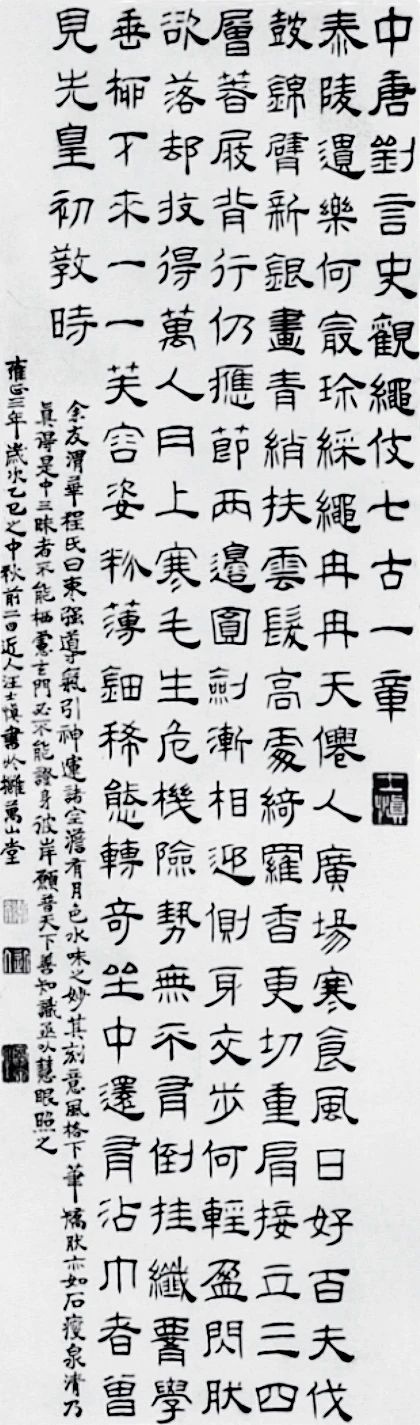 中唐劉言史觀繩伎七古一章
士慎
泰陵遺樂何最珍綵繩冉冉天僊人廣場寒食風日好百夫伐
鼓錦臂新銀畫青綃抹雲髮高處綺羅香更切重肩接立三四
層著屐背行仍應節兩邊圓劍漸相迎側身交步何輕盈閃肰
欲落却收得萬人肉上寒毛生危機險勢無不有倒挂纖腰學
垂柳下來一一芙容姿粉薄鈿稀態轉奇坐中還有沾巾者曾
見先皇初教時
余友渭華程氏曰東强導氣引神運諸空澹有月色水味之妙其刻意風格下筆矯肰亦如石瘦泉清乃
真得是中三昧者不能栖慮玄門必不能證身彼岸願普天下善知識亟以慧眼照之
雍正三年歲次乙巳之中秋前二日近人汪士慎書於擁萬山堂